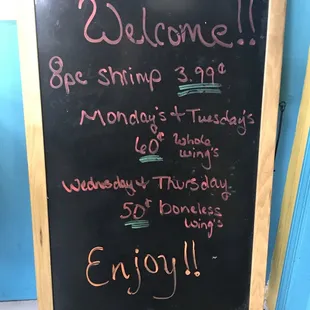 Welcome!!
8pc shrimp 3.99¢
Monday's & Tuesday's
60¢ whole
wing's
Wednesday & Thursday
50¢ boneless
wing's
Enjoy!!